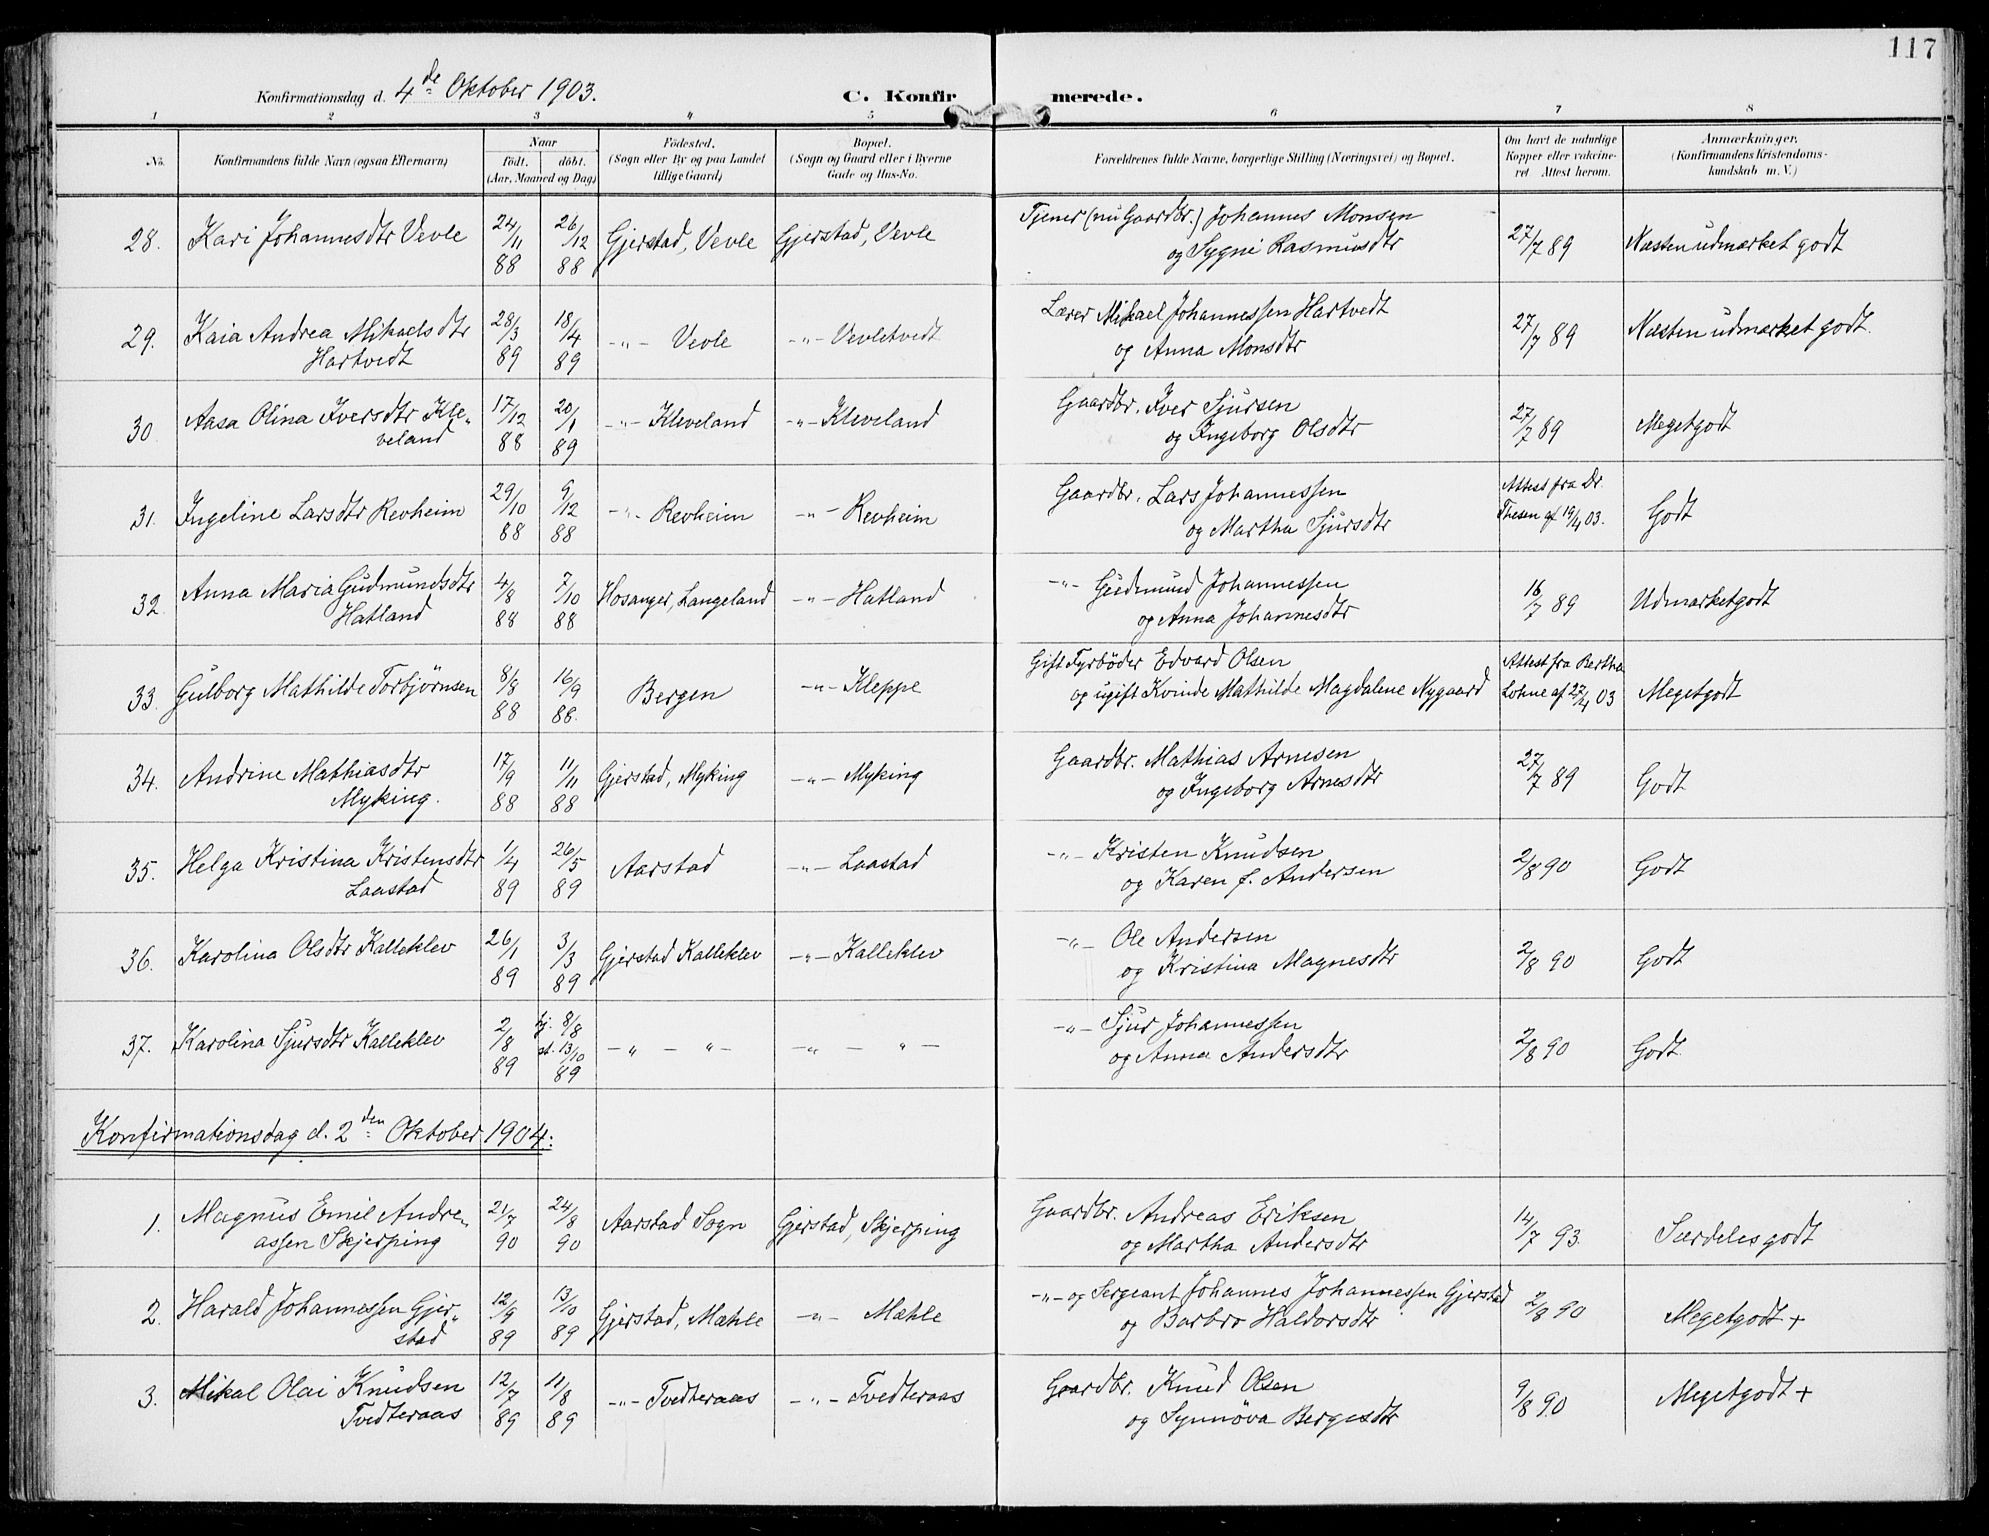 117
Konfirmationsdag d. 4de Oktober 1903. C. Konfirmerede.
1 2 3 4 5 6 7 8
No. Konfirmandens fulde Navn (ogsaa Efternavn) Naar födt. döbt. (Aar, Maaned og Dag) Födested. (Sogn eller By og paa Landet tillige Gaard) Bopæl. (Sogn og Gaard eller i Byerne Gade og Hus-No. Forældrenes fulde Navne, borgerlige Stilling (Næringsvei) og Bopæl. Om havt de naturlige Kopper eller vakcineret Attest herom. Anmærkninger. (Konfirmandens Kristendomskundskab m. V.)
28. Kari Johannesdtr Vevle 24/11 88 26/12 88 Gjerstad, Vevle Gjerstad, Vevle Tjener (nu Gaardbr.) Johannes Monsen
og Sygni Rasmusdtr 27/7 89 Næsten udmærket godt
29. Kaia Andrea Mikaelsdtr
Hartvedt 28/3 89 18/4 89 -"- Vevle -"- Vevletvedt Lærer Mikael Johannessen Hartvedt
og Anna Monsdtr 27/7 89 Næsten udmærket godt.
30 Aasa Olina Iversdtr Kle-
veland 17/12 88 20/1 89 -"- Kleveland -"- Kleveland Gaardbr. Iver Sjursen
og Ingeborg Olsdtr 27/7 89 Megetgodt
31. Ingeline Larsdtr Revheim 29/10 88 9/12 88 -"- Revheim -"- Revheim Gaardbr. Lars Johannessen
og Martha Sjursdtr Attest fra Dr. Thesen af 19/4 03. Godt
32. Anna Maria Gudmundsdtr
Hatland 4/8 88 7/10 88 Hosanger, Langeland -"- Hatland -"- Gudmund Johannessen
og Anna Johannesdtr 16/7 89 Udmærketgodt
33. Gulborg Mathilde Torbjörnsen 8/8 88 16/9 88. Bergen -"- Kleppe Gift Fyrböder Edvard Olsen
og ugift Kvinde Mathilde Magdalene Nygaard Attest fra Bertha Lohne af 27/4 03 Megetgodt
34. Andrine Mathiasdtr
Myking. 17/9 88 11/11 88 Gjerstad, Myking -"- Myking Gaardbr. Mathias Arnesen
og Ingeborg Arnesdtr 27/7 89 Godt
35. Helga Kristina Kristensdtr
Laastad 1/4 89 26/5 89 Aarstad -"- Laastad -"- Kristen Knudsen
og Karen f. Andersen 2/8 90 Godt
36. Karolina Olsdtr Kalleklev 26/1 89 3/3 89 Gjerstad Kalleklev -"- Kalleklev -"- Ole Andersen
og Kristina Magnesdtr 2/8 90 Godt
37. Karolina Sjursdtr Kalleklev 2/8 89 hj. 8/8 st. 13/10 89 -"- "- -"- "- -"- Sjur Johannessen
og Anna Andersdtr 2/8 90 Godt
Konfirmationsdag d. 2den Oktober 1904:
1. Magnus Emil Andre-
assen Skjerping 21/7 90 24/8 90 Aarstad Sogn Gjerstad, Skjerping Gaardbr. Andreas Eriksen
og Martha Andersdtr 14/7 93. Særdeles godt
2. Harald Johannessen Gjer-
stad 12/9 89 13/10 89 Gjerstad, Mæhle -"- Mæhle -"- og Sergeant Johannes Johannessen Gjerstad
og Barbro Haldorsdtr 2/8 90 Megetgodt +
3. Mikal Olai Knudsen
Tvedteraas 12/7 89 11/8 89 -"- Tvedteraas -"- Tvedteraas Gaardbr. Knud Olsen
og Synnöva Bergesdtr 9/8 90 Megetgodt +